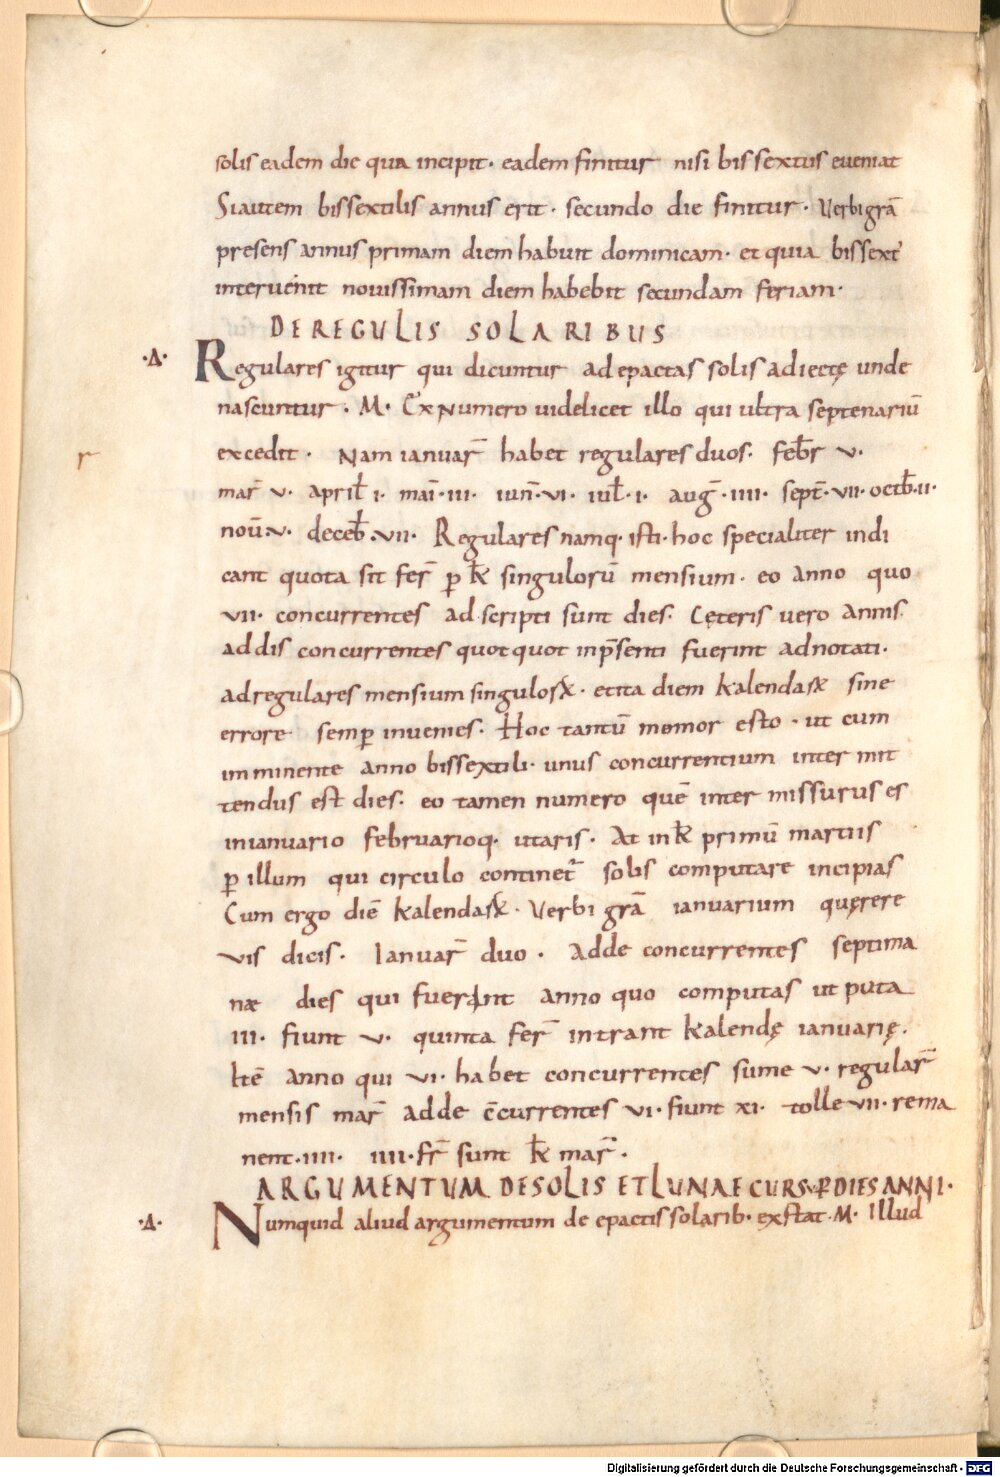 solis eadem die qua incipit· eadem finitur nisi bissextus eveniat
Si autem bissextilis annus erit· secundo die finitur· Verbi grā
presens annus primam diem habuit dominicam· et quia bissext᾽
intervenit novissimam diem habebit secundam feriam·
DE REGULIS SOLARIBUS
·Δ· Regulares igitur qui dicuntur ad epactas solis adiectę unde
nascuntur· M· Ex numero videlicet illo qui ultra septenariū
excedit· Nam ianuar̄ habet regulares duos· feb̄r v·
r
mar̄ v· april̄ i· mai̅·iii· iun̄·vi· iul̄·i· aug̅·iiii· sept̄·vii· octb̄·ii·
nov̄·v· deceb̄·vii· Regulares namq· isti· hoc specialiter indi
cant quota sit fer̄ ꝑ k̄ł singulorū mensium· eo anno quo
vii· concurrentes adscripti sunt dies· Cęteris vero annis·
addis concurrentes quotquot in p̄senti fuerint adnotati·
ad regulares mensium singulosꝝ· et ita diem kalendaꝝ sine
errore semꝑ invenies· Hoc tantū memor esto· ut cum
imminente anno bissextili· unus concurrentium intermit
tendus est dies· eo tamen numero quē intermissurus es
in ianuario februarioq· utaris· At in k̄ł primū martiis
ꝑ illum qui circulo continet̄ solis computare incipias
Cum ergo diē kalendaꝝ· Verbi grā ianuarium quęrere
vis dicis· Ianuar̄ duo· Adde concurrentes septima
næ dies qui fuerint anno quo computas ut puta
iii· fiunt v· quinta fer̄ intrant kalendę ianuarię·
Itē anno qui vi· habet concurrentes sume v· regular̄
mensis mar̄ adde c̄currentes vi· fiunt xi· tolle vii· rema
nent·iiii· iiii·fr̄ sunt k̄ł mar̄·
ARGUMENTUM DE SOLIS ET LUNAE CURSU ꝐDIES ANNI·
·Δ· Numquid aliud argumentum de epactis solarib· exstat· M· Illud
Digitalisierung gefördert durch die Deutsche Forschungsgemeinschaft - DFG